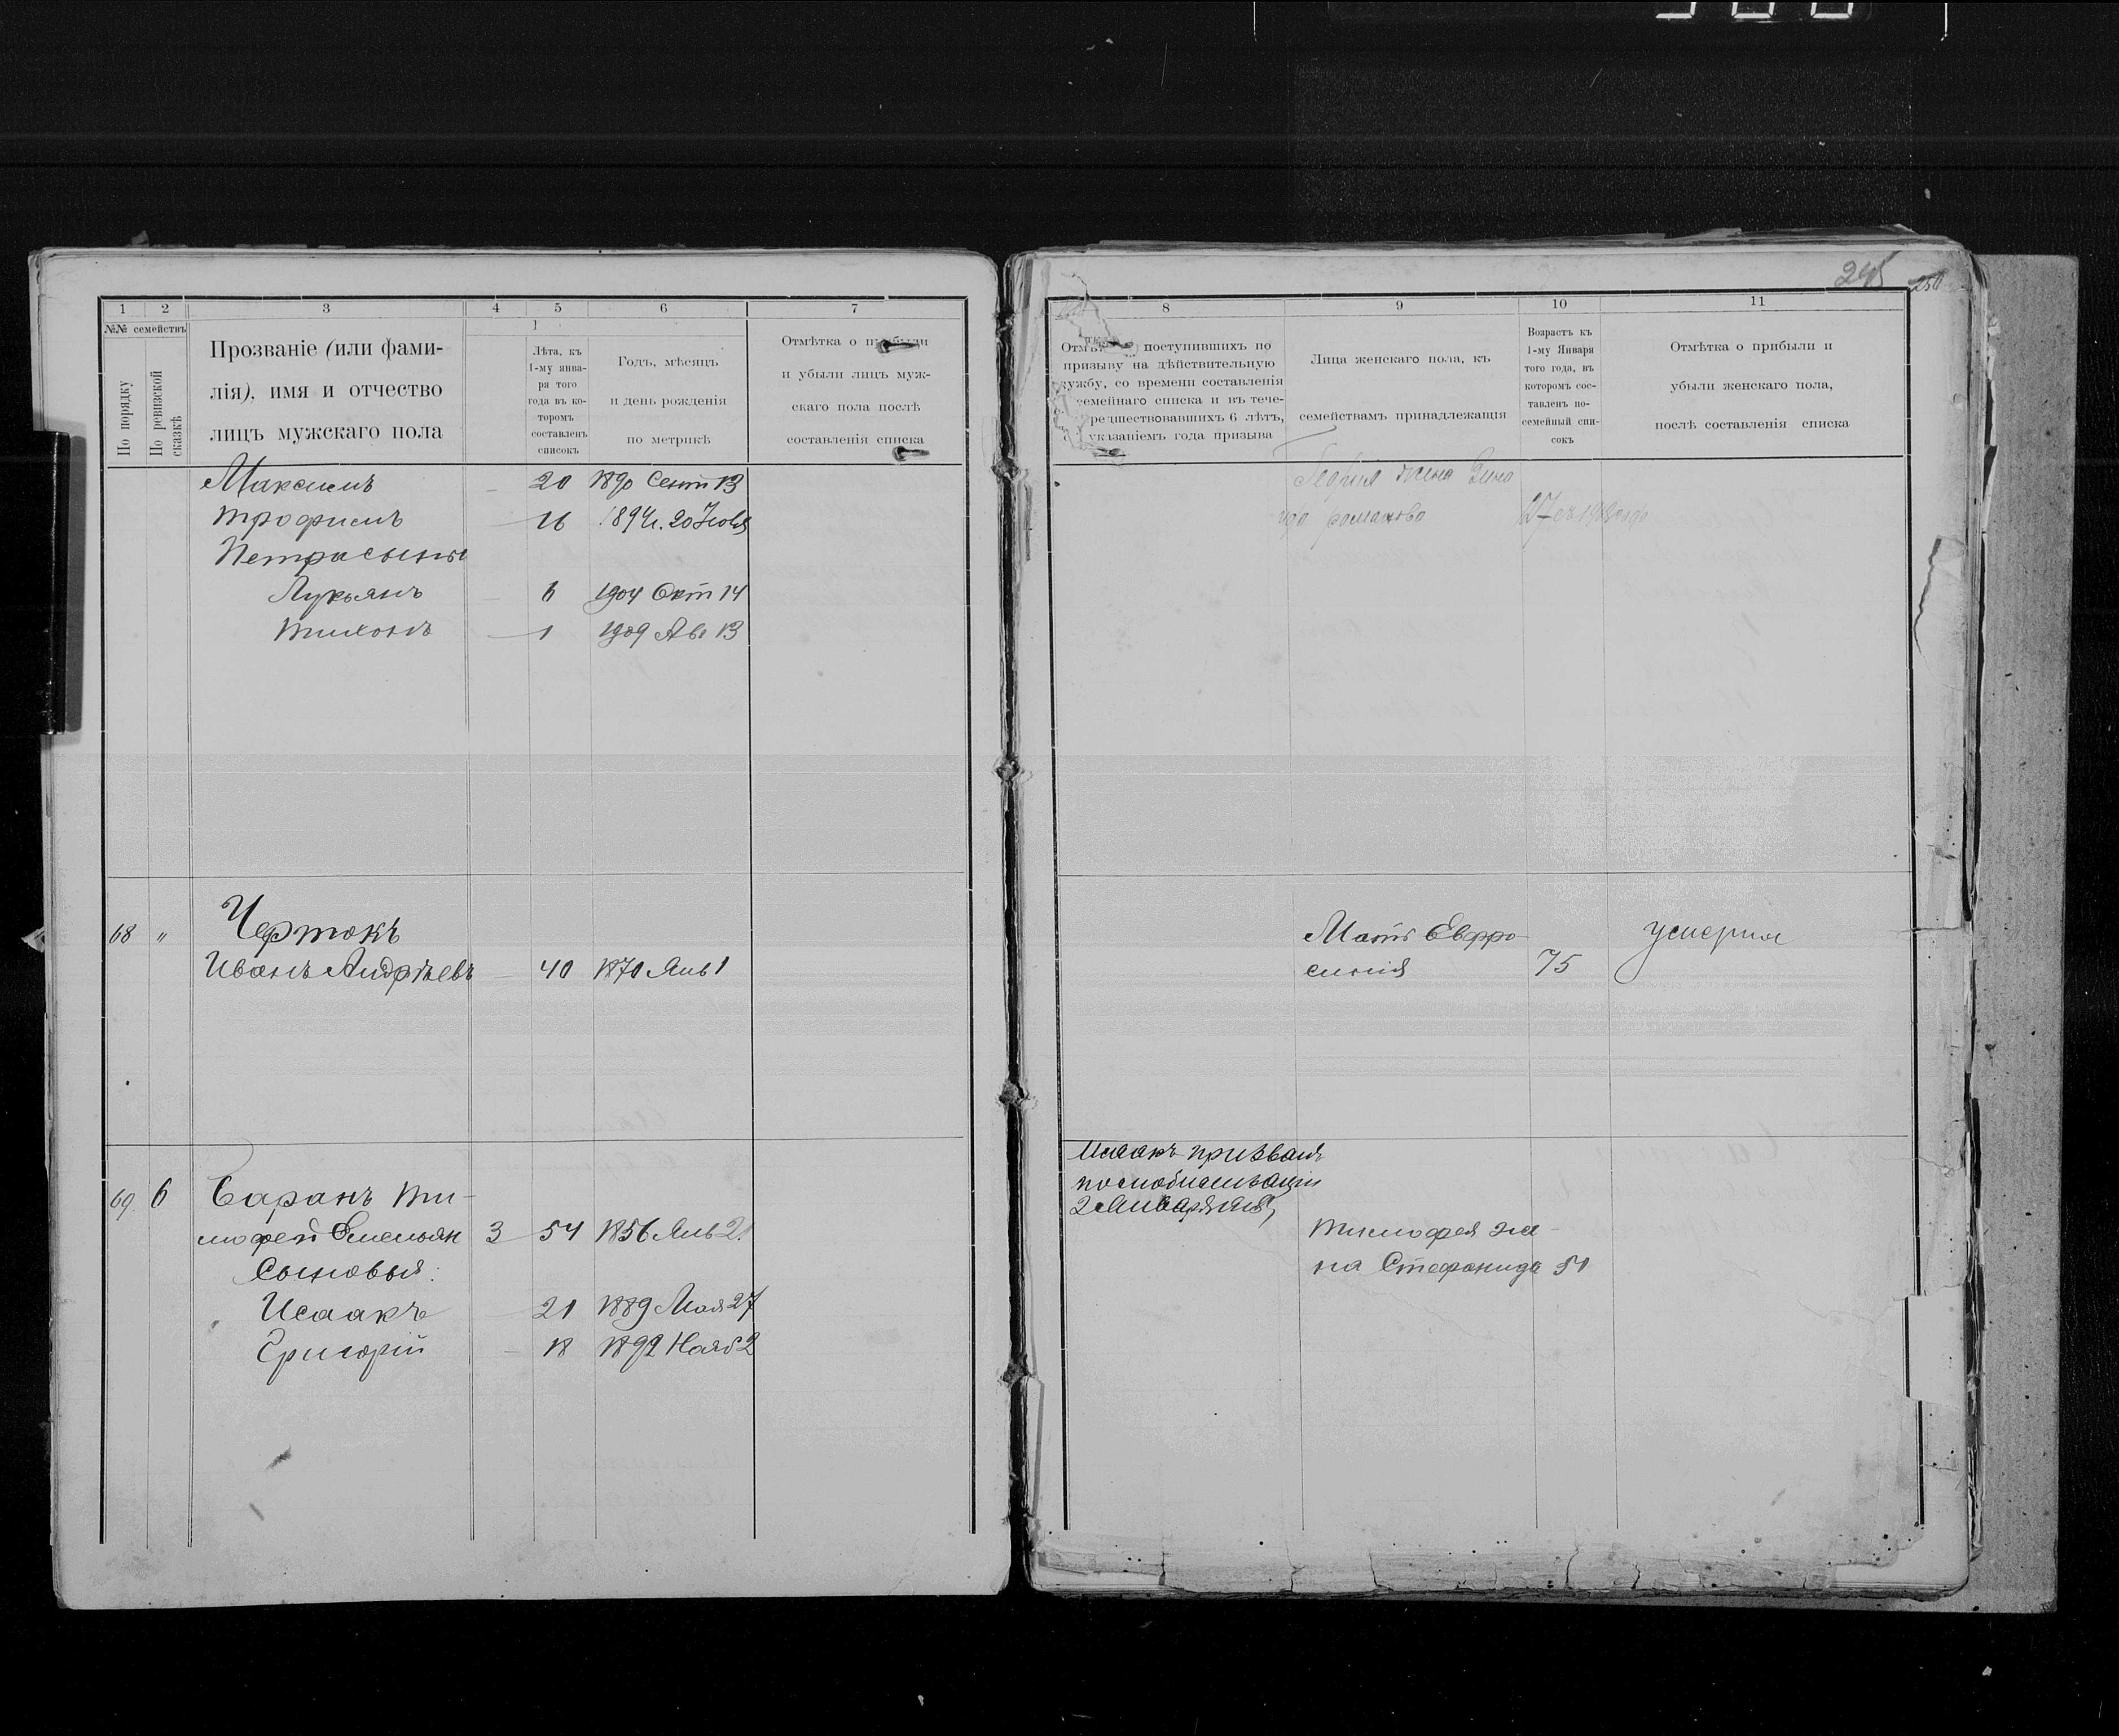 1 2 3 4 5 6 7
№№ семействъ
По порядку
По ревизской сказкѣ
Прозваніе (или фами-
лія), имя и отчество
лицъ мужскаго пола
Лѣта, къ
1-му янва-
ря того
года въ ко-
торомъ
составленъ
списокъ
Годъ, мѣсяцъ
и день рожденія
по метрикѣ
Отмѣтка о прибыли
и убыли лицъ муж-
скаго пола послѣ
составленія списка
Максимъ 20 1890 Сент 13
Трофимъ 16 20 Іюля
Петра сыновья
Лукьянъ 6 1904 Окт 14
Тихонъ 1 1909 Авг 13
68 " Чертокъ
Иванъ Андрѣевъ 40 1870 Янв 1
69 6 Баранъ Ти-
мофей Емельян 3 54 1856 Янв 21
Сыновья:
Исаакъ 21 1889 Мая 27
Григорій 18 1892 Нояб 2
8 9 10 11
поступившихъ по
призыву на дѣйствительную
службу, со времени составленія
семейнаго списка и въ тече-
предшествовавшихъ 6 лѣтъ,
указаніемъ года призыва
Лица женскаго пола, къ
семействамъ принадлежащія
Возрастъ къ
1-му Января
того года, въ
которомъ сос-
тавленъ по-
семейный спи-
сокъ
Отмѣтка о прибыли и
убыли женскаго пола,
послѣ составленія списка
жена
Мать Евфро-
синія 75
умерла
Исаакъ призванъ
по мобилизаціи
Тимофея же-
на Стефанида 51